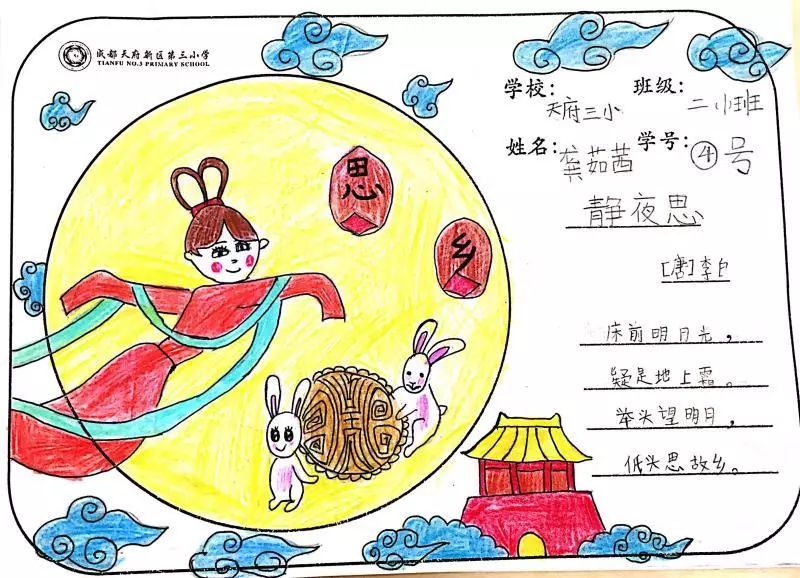 成都天府新区第三小学
TIANFU NO.3 PRIMARY SCHOOL
学校: 天府三小 班级: 二小班
姓名: 龚茹茜 学号: ④号
思
乡
静夜思
[唐]李白
床前明月光，
疑是地上霜。
举头望明月，
低头思故乡。